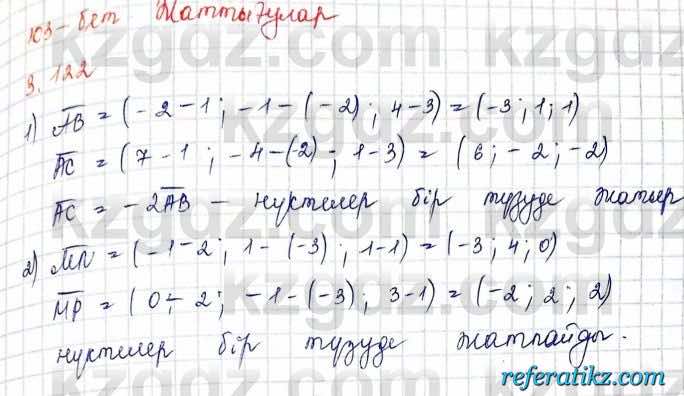 103-бет Жаттығулар
3.122
1) AB = (-2-1; -1-(-2); 4-3) = (-3; 1; 1)
AC = (7-1; -4-(-2); 1-3) = (6; -2; -2)
AC = -2AB - нүктелер бір түзуде жатыр
2) MN = (-1-2; 1-(-3); 1-1) = (-3; 4; 0)
MP = (0-2; -1-(-3); 3-1) = (-2; 2; 2)
нүктелер бір түзуде жатпайды.
kzgdz.com
referatikz.com